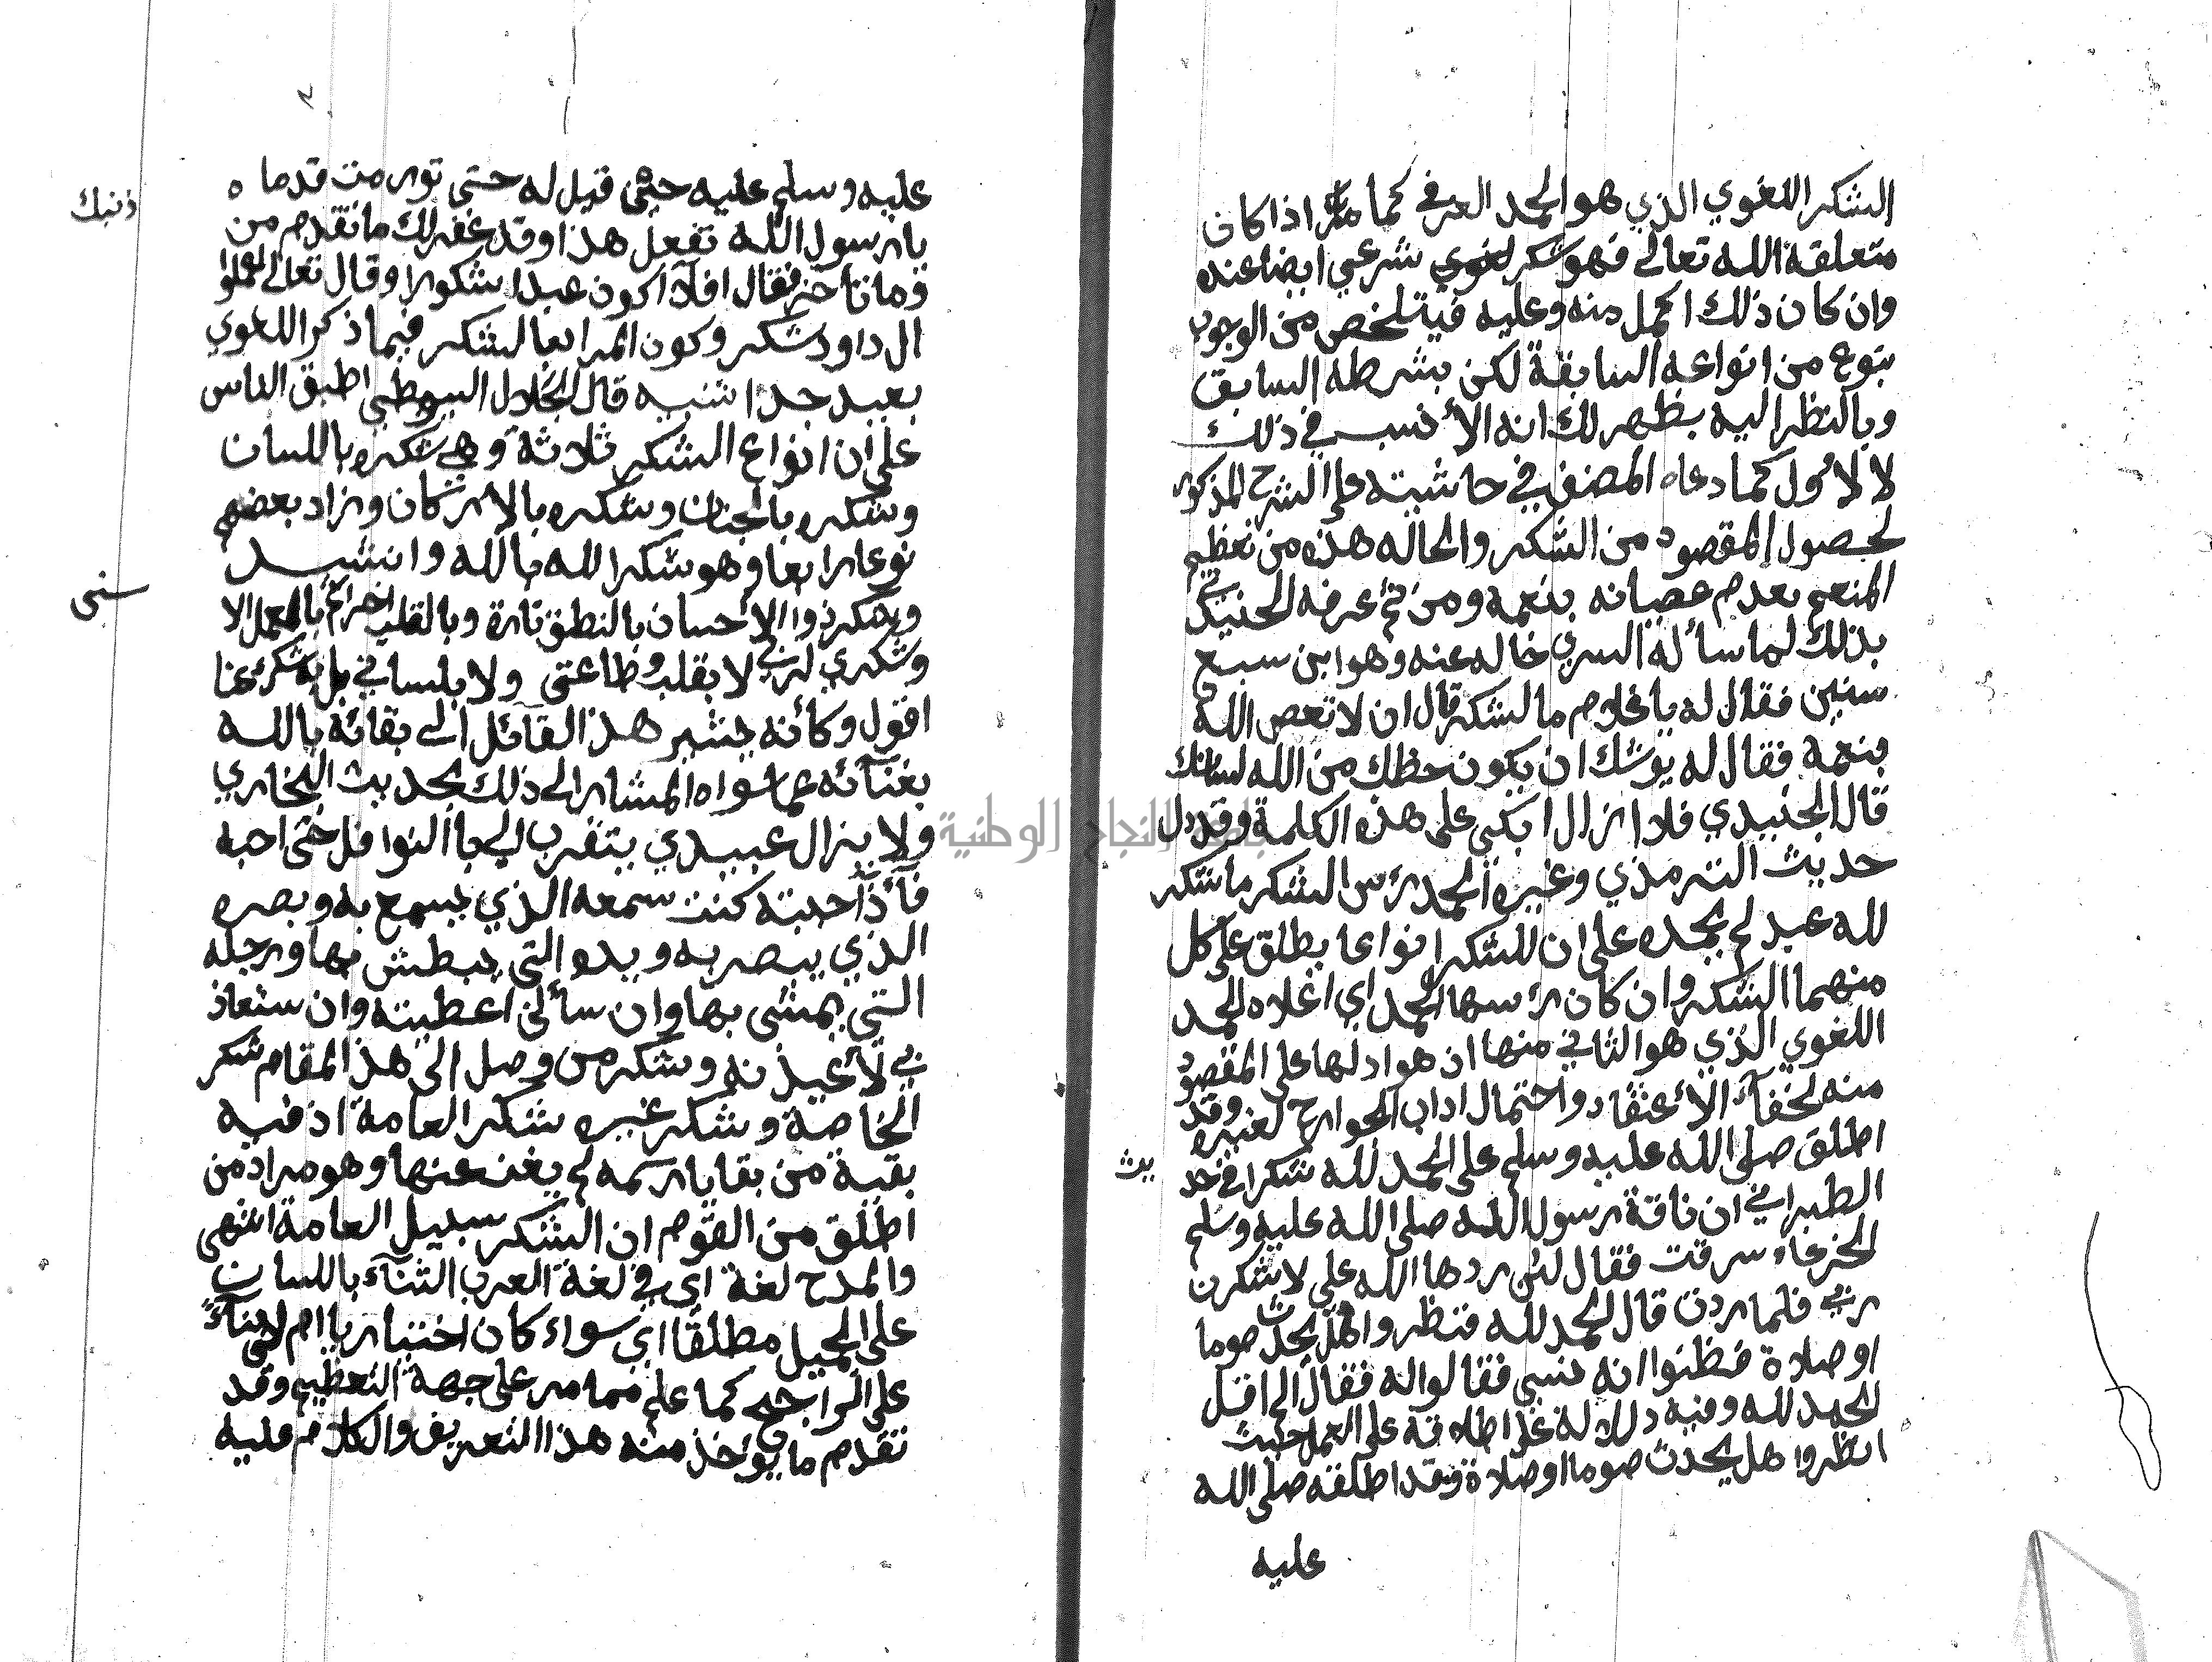 الشكر اللغوي الذي هو الحمد العرفي كما مر اذا كان
متعلقه الله تعالى فهو شكر لغوي شرعي ايضا عنده
وان كان ذلك اكمل منه وعليه فيتلخص من الوجوب
بنوع من انواعه السابقة لكن بشرطه السابق
وبالنظر اليه يظهر لك انه الأنسب في ذلك
لا لاول كما دعاه المصنف في حاشيته على الشرح المذكور
لحصول المقصود من الشكر والحاله هذه من تعظيم
المنعم بعدم عصيانه بنعمه ومن ثم عرفه الجنيد
بذلك لما سأله السري خاله عنه وهو ابن سبع
سنين فقال له يا غلام ما لشكر قال ان لا تعص الله
بنعمه فقال له يوشك ان يكون حظك من الله لسانك
قال الجنيدي فلا ازال ابكى على هذه الكلمة وقد دل
حديث الترمذي وغيره الحمد رس الشكر ما شكر
لله عبد لم يحمده على ان للشكر انواعا يطلق على كل
منهما الشكر وان كان رسها الحمد اي اعلاه الحمد
اللغوي الذي هو الثاني منها ان هو ادلها على المقصود
منه لخفآء الأعتقاد واحتمال اداب الجوارح لغيره وقد
اطلق صلى الله عليه وسلم على الحمد لله شكرا في حد
يث
الطبراني ان ناقة رسول الله صلى الله عليه وسلم
الخزعاء سرقت فقال لئن ردها الله علي لاشكرن
ربي فلما ردت قال الحمد لله فنظروا هل يحدث صوما
او صلاة فظنوا انه نسي فقالواله فقال الم اقل
الحمد لله وفيه دلالة على اطلاقه على العمل حيث
انظروا هل يحدث صوما او صلاة وقد اطلقه صلى الله
عليه
عليه وسلم عليه حتى قيل له حتى تورمت قدماه
يا رسول الله تفعل هذا وقد غفر لك ما تقدم من
ذنبك
وما تأخر فقال افلا اكون عبدا شكورا وقال تعالى اعملوا
ال داود شكر وكون المرا بها الشكر فيما ذكر اللغوي
بعيد جدا تنبيه قال الجلال السيوطي اطبق الناس
على ان انواع الشكر ثلاثة وهي شكره باللسان
وشكره بالجنان وشكره بالاركان وزاد بعضهم
نوعا رابعا وهو شكر الله بالله وانشد
وشكر ذوا الأحسان بالنطق تارة وبالقلب اخرى ثم بالعمل الا
سنى
وشكري لربي لا بقلب وطاعتى ولا بلساني بل به شكره عنا
اقول وكأنه يشير هذا القائل الى بقائه بالله
بغنآئه عما سواه المشار الى ذلك بحديث البخاري
ولا يزال عبيدي يتقرب الي با النوافل حتى احبه
فأذا احببته كنت سمعه الذي يسمع به وبصره
الذي يبصر به ويده التي يبطش بها ورجله
التي يمشى بها وان سألني اعطيته وان ستعاذ
بي لأعيذنه وشكر من وصل الى هذا المقام شكر
الخاصة وشكر غيره شكر العامة اذ فيه
بقية من بقايا رسمه لم يغن عنها وهو مراد من
اطلق من القوم ان الشكر سبيل العامة انتهى
والمدح لغة اي في لغة العرب الثنآء باللسان
على الجميل مطلقا اي سواء كان اختيار يا ام لا بنآءً
على الراجح كما علم مما مر على جهة التعظيم وقد
تقدم ما يؤخذ منه هذا التعريف والكلام عليه
جامعة النجاح الوطنية